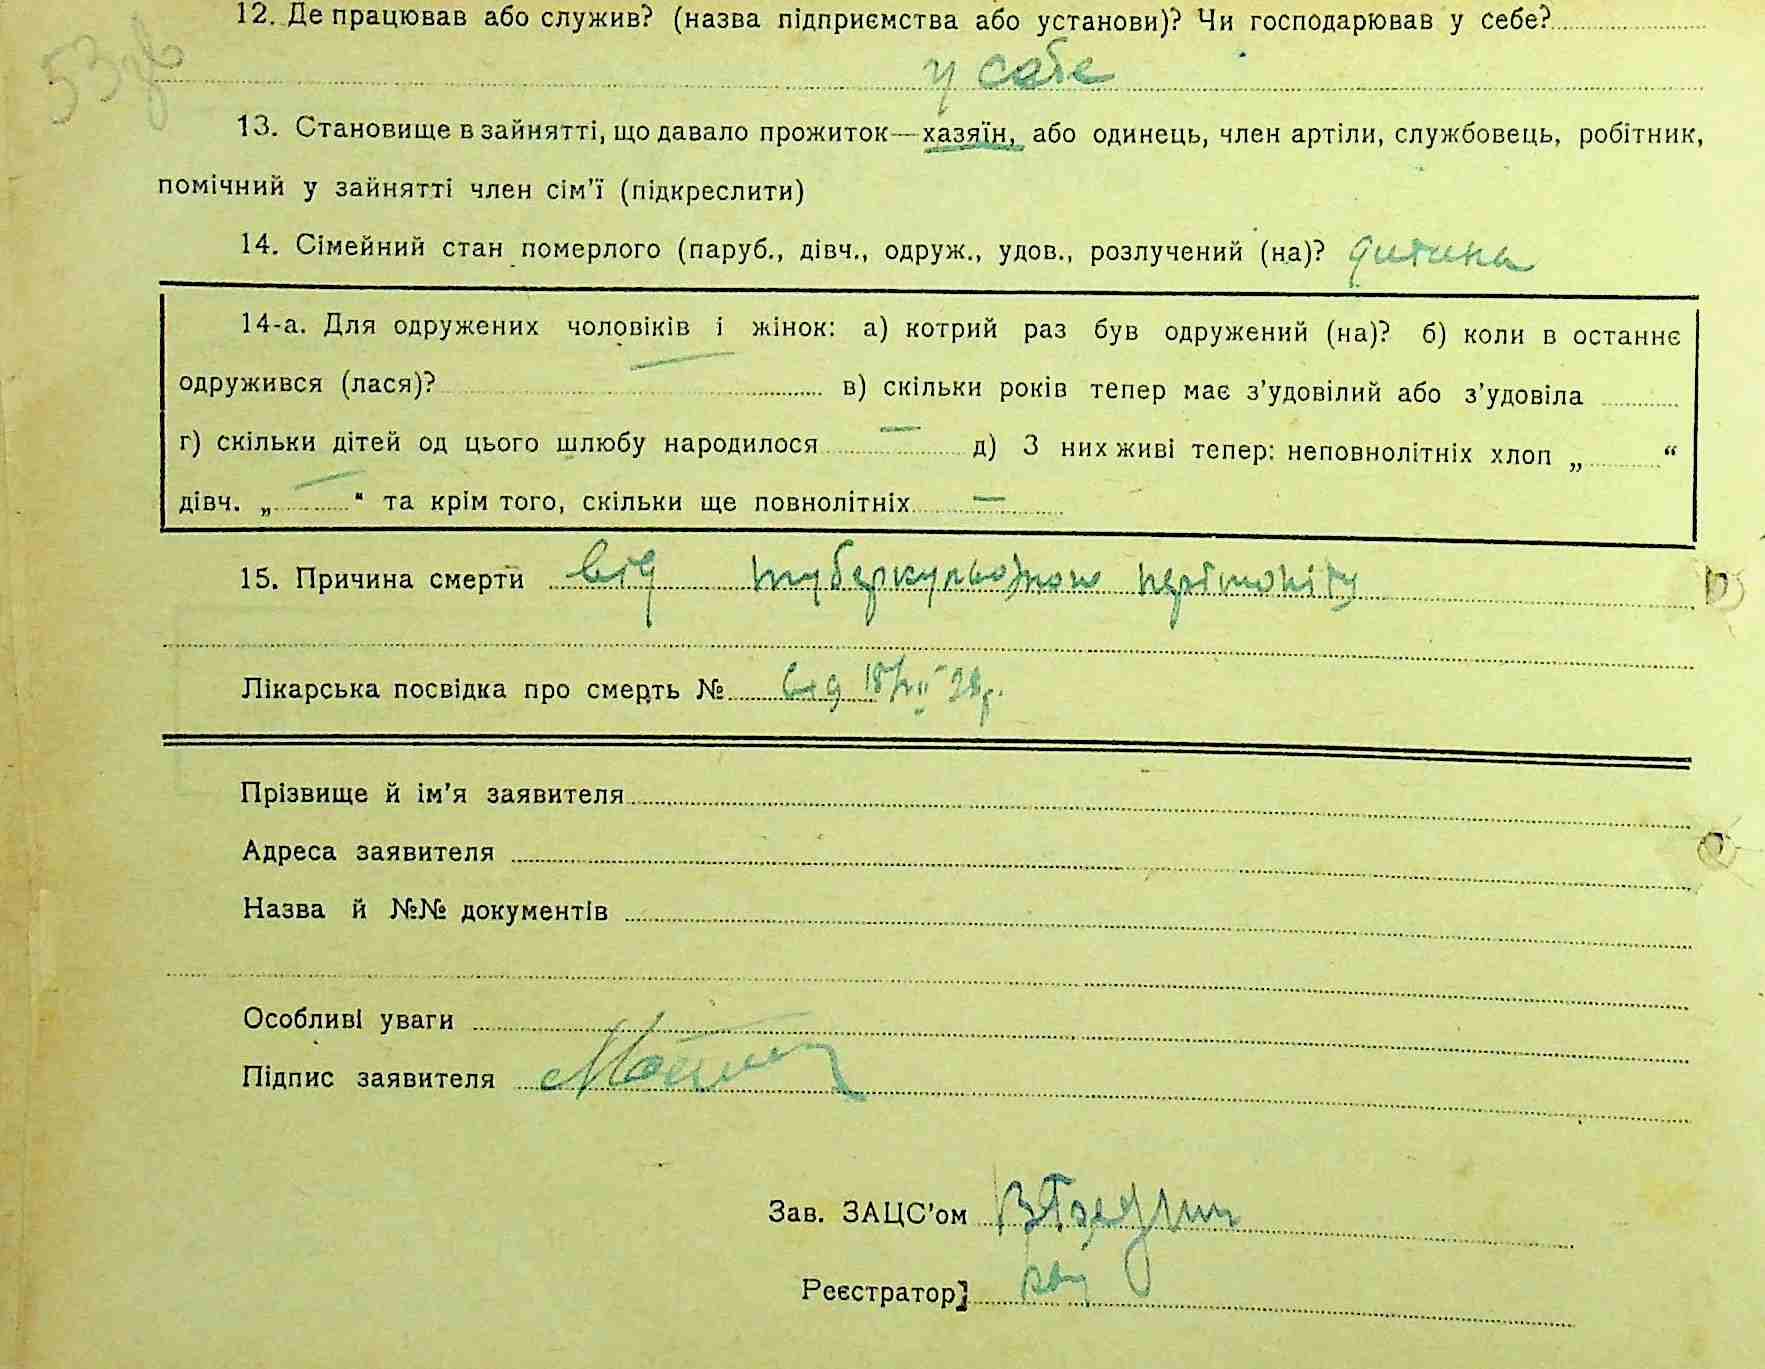 53 зв
12. Де працював або служив? (назва підприємства або установи)? Чи господарював у себе?
у себе
13. Становище в зайнятті, що давало прожиток—хазяїн, або одинець, член артіли, службовець, робітник,
помічний у зайнятті член сім'ї (підкреслити)
14. Сімейний стан померлого (паруб., дівч., одруж., удов., розлучений (на)? дитина
14-а. Для одружених чоловіків і жінок: а) котрий раз був одружений (на)? б) коли в останнє
одружився (лася)? — в) скільки років тепер має з'удовілий або з'удовіла
г) скільки дітей од цього шлюбу народилося — д) З них живі тепер: неповнолітніх хлоп „ “
дівч. „ — “ та крім того, скільки ще повнолітніх —
15. Причина смерти від туберкульозного перітоніту
Лікарська посвідка про смерть № від 18/
Прізвище й ім'я заявителя
Адреса заявителя
Назва й №№ документів
Особливі уваги
Підпис заявителя
Зав. ЗАЦС'ом
Реєстратор]